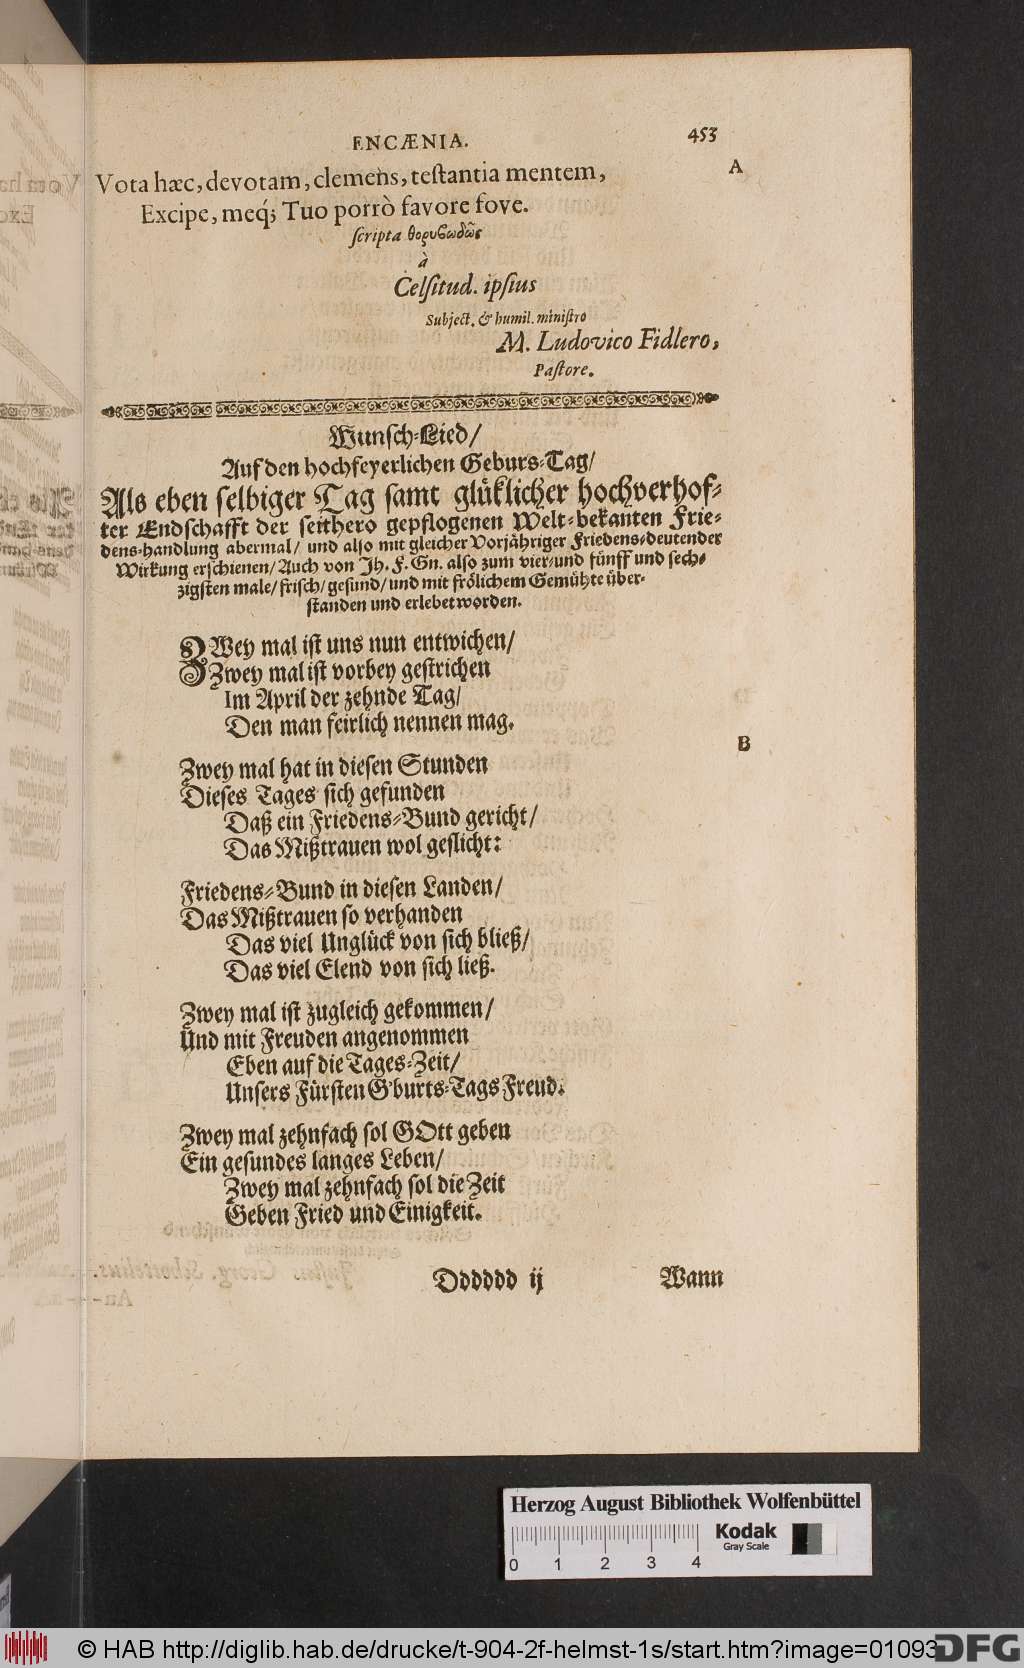 ENCÆNIA. 453
A
Vota hæc, devotam, clemens, testantia mentem,
Excipe, meq́; Tuo porrò favore fove.
scripta θορυβωδῶς
à
Celsitud. ipsius
Subject. & humil. ministro
M. Ludovico Fidlero,
Pastore.
Wunsch-Lied/
Auf den hochfeyerlichen Geburs-Tag/
Als eben selbiger Tag samt glüklicher hochverhof-
ter Endschafft der seithero gepflogenen Welt-bekanten Frie-
dens-handlung abermal/ und also mit gleicher Vorjähriger Friedens-deutender
Wirkung erschienen/ Auch von Jh. F. Gn. also zum vier-und fünff und sech-
zigsten male/ frisch/ gesund/ und mit frölichem Gemühte über-
standen und erlebet worden.
ZWey mal ist uns nun entwichen/
Zwey mal ist vorbey gestrichen
Im April der zehnde Tag/
Den man feirlich nennen mag.
B
Zwey mal hat in diesen Stunden
Dieses Tages sich gefunden
Daß ein Friedens-Bund gericht/
Das Mißtrauen wol geslicht:
Friedens-Bund in diesen Landen/
Das Mißtrauen so verhanden
Das viel Unglück von sich bließ/
Das viel Elend von sich ließ.
Zwey mal ist zugleich gekommen/
Und mit Freuden angenommen
Eben auf die Tages-Zeit/
Unsers Fürsten G'burts-Tags Freud.
Zwey mal zehnfach sol GOtt geben
Ein gesundes langes Leben/
Zwey mal zehnfach sol die Zeit
Geben Fried und Einigkeit.
Dddddd ij Wann
Herzog August Bibliothek Wolfenbüttel
Kodak
Gray Scale
0 1 2 3 4
© HAB http://diglib.hab.de/drucke/t-904-2f-helmst-1s/start.htm?image=01093
DFG